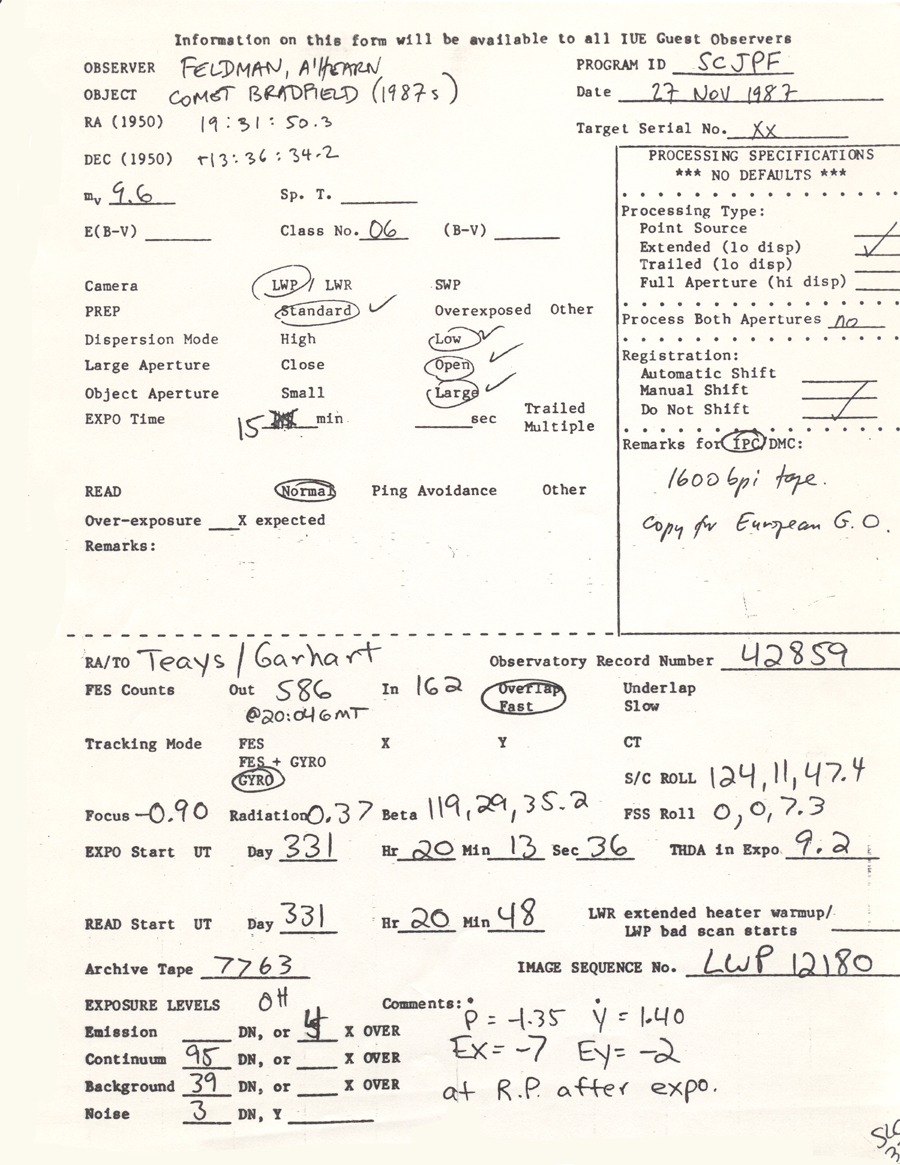 Information on this form will be available to all IUE Guest Observers
OBSERVER FELDMAN, A'HEARN
PROGRAM ID SCJPF
OBJECT COMET BRADFIELD (1987s)
Date 27 NOV 1987
RA (1950) 19:31:50.3
Target Serial No. XX
DEC (1950) +13:36:34.2
PROCESSING SPECIFICATIONS
*** NO DEFAULTS ***
mv 9.6 Sp. T.
E(B-V) Class No. 06 (B-V)
Processing Type:
Point Source
Extended (lo disp)
Trailed (lo disp)
Full Aperture (hi disp)
Process Both Apertures no
Registration:
Automatic Shift
Manual Shift
Do Not Shift
Remarks for IPC/DMC:
1600 bpi tape.
Copy for European G.O.
Camera LWP / LWR SWP
PREP Standard Overexposed Other
Dispersion Mode High Low
Large Aperture Close Open
Object Aperture Small Large
EXPO Time 15 min sec Trailed
Multiple
READ Normal Ping Avoidance Other
Over-exposure X expected
Remarks:
RA/TO Teays/Garhart Observatory Record Number 42859
FES Counts Out 586 In 162 Overlap Underlap
Fast Slow
@20:04GMT
Tracking Mode FES X Y CT
FES + GYRO
GYRO S/C ROLL 124,11,47.4
Focus -0.90 Radiation 0.37 Beta 119,29,35.2 FSS Roll 0,0,7.3
EXPO Start UT Day 331 Hr 20 Min 13 Sec 36 THDA in Expo 9.2
READ Start UT Day 331 Hr 20 Min 48 LWR extended heater warmup/
LWP bad scan starts
Archive Tape 7763 IMAGE SEQUENCE No. LWP 12180
EXPOSURE LEVELS OH Comments: Ṗ = -1.35 Ẏ = 1.40
Emission DN, or X OVER
Continuum 95 DN, or X OVER Ex= -7 Ey= -2
Background 39 DN, or X OVER at R.P. after expo.
Noise 3 DN, Y